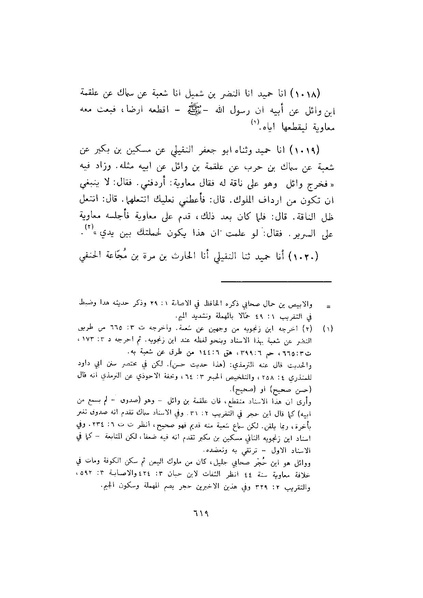 (١٠١٨) انا حميد انا النضر بن شميل انا شعبة عن سماك عن علقمة
ابن وائل عن أبيه ان رسول الله - ﷺ - اقطعه ارضا، فبعث معه
معاوية ليقطعها اياه.(١)
(١٠١٩) انا حميد وثناه ابو جعفر النفيلي عن مسكين بن بكير عن
شعبة عن سماك بن حرب عن علقمة بن وائل عن ابيه مثله. وزاد فيه
« فخرج وائل وهو على ناقة له فقال معاوية: أردفني. فقال: لا ينبغي
ان تكون من ارداف الملوك. قال: فأعطني نعليك انتعلهما. قال: انتعل
ظل الناقة. قال: فلما كان بعد ذلك، قدم على معاوية فأجلسه معاوية
على السرير. فقال: لو علمت ان هذا يكون لحملتك بين يدي»(٢).
(١٠٢٠) أنا حميد ثنا النفيلي أنا الحارث بن مرة بن مُجّاعة الحنفي
= والابيض بن حمال صحابي ذكره الحافظ في الاصابة ١: ٢٩ وذكر حديثه هذا وضبط
في التقريب ١: ٤٩ حمّالا بالمهملة وتشديد الميم.
(١) (٢) اخرجه ابن زنجويه من وجهين عن شعبة. واخرجه ت ٣: ٦٦٥ من طريق
النضر عن شعبة بهذا الاسناد وبنحو لفظه عند ابن زنجويه. ثم اخرجه د ٣: ١٧٣،
ت ٣: ٦٦٥، حم ٦: ٣٩٩، هق ٦: ١٤٤ من طرق عن شعبة به.
والحديث قال عنه الترمذي: (هذا حديث حسن). لكن في مختصر سنن ابي داود
للمنذري ٤: ٢٥٨، والتلخيص الحبير ٣: ٦٤، وتحفة الاحوذي عن الترمذي انه قال
(حسن صحيح) او (صحيح).
وأرى ان هذا الاسناد منقطع، فان علقمة بن وائل - وهو (صدوق - لم يسمع من
ابيه) كما قال ابن حجر في التقريب ٢: ٣١. وفي الاسناد سماك تقدم انه صدوق تغير
بأخرة، ربما يلقن. لكن سماع شعبة منه قديم فهو صحيح، انظر ت ت ٤: ٢٣٤. وفي
اسناد ابن زنجويه الثاني مسكين بن بكير تقدم انه فيه ضعفا، لكن المتابعة - كما في
الاسناد الاول - ترتقي به وتعضده.
ووائل هو ابن حُجْر صحابي جليل، كان من ملوك اليمن ثم سكن الكوفة ومات في
خلافة معاوية سنة ٤٤ انظر الثقات لابن حبان ٣: ٤٢٤ والاصابة ٣: ٥٩٢،
والتقريب ٢: ٣٢٩ وفي هذين الاخيرين حجر بضم المهملة وسكون الجيم.
٦١٩